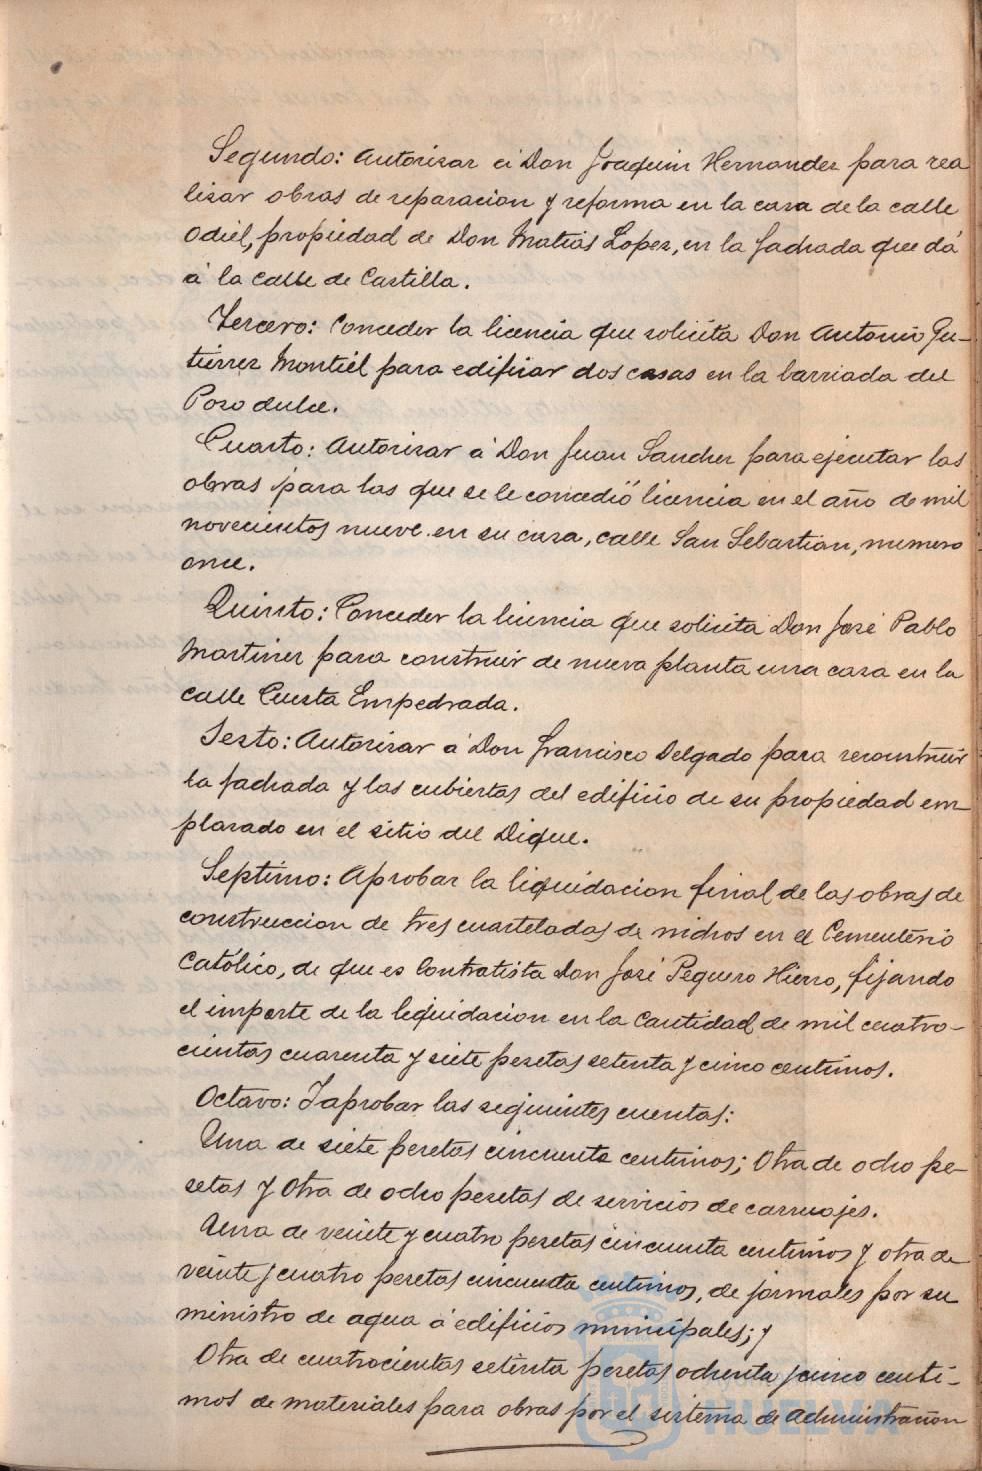 Segundo: Autorizar á Don Joaquin Hernandez para rea
lizar obras de reparacion y reforma en la casa de la calle
Odiel, propiedad de Don Matias Lopez, en la fachada que dá
á la calle de Castilla.
Tercero: Conceder la licencia que solicita Don Antonio Gu-
tierrez Montiel para edificar dos casas en la barriada del
Pozo dulce.
Cuarto: Autorizar á Don Juan Sanchez para ejecutar las
obras para las que se le concedió licencia en el año de mil
novecientos nueve en su casa, calle San Sebastian, numero
once.
Quinto: Conceder la licencia que solicita Don José Pablo
Martinez para construir de nueva planta una casa en la
calle Cuesta Empedrada.
Sexto: Autorizar á Don Francisco Delgado para reconstruir
la fachada y las cubiertas del edificio de su propiedad em-
plazado en el sitio del Dique.
Septimo: Aprobar la liquidacion final de las obras de
construccion de tres cuarteladas de nichos en el Cementerio
Católico, de que es Contratista Don José Peguero Hierro, fijando
el importe de la liquidacion en la cantidad de mil cuatro-
cientas cuarenta y siete pesetas setenta y cinco centimos.
Octavo: Y aprobar las seguientes cuentas:
Una de siete pesetas cincuenta centimos; Otra de ocho pe-
setas y Otra de ocho pesetas de servicios de carruajes.
Una de veinte y cuatro pesetas cincuenta centimos y otra de
veinte y cuatro pesetas cincuenta centimos, de jornales por su
ministro de agua á edificios municipales; y
Otra de cuatrocientas setenta pesetas ochenta y cinco centi-
mos de materiales para obras por el sistema de Administracion
HUELVA